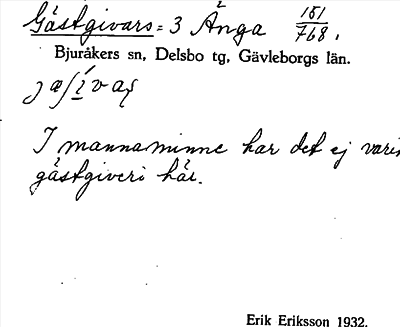 Gästgivars = 3 Ånga 151/768.
Bjuråkers sn, Delsbo tg, Gävleborgs län.
I mannaminne har det ej varit
gästgiveri här.
Erik Eriksson 1932.